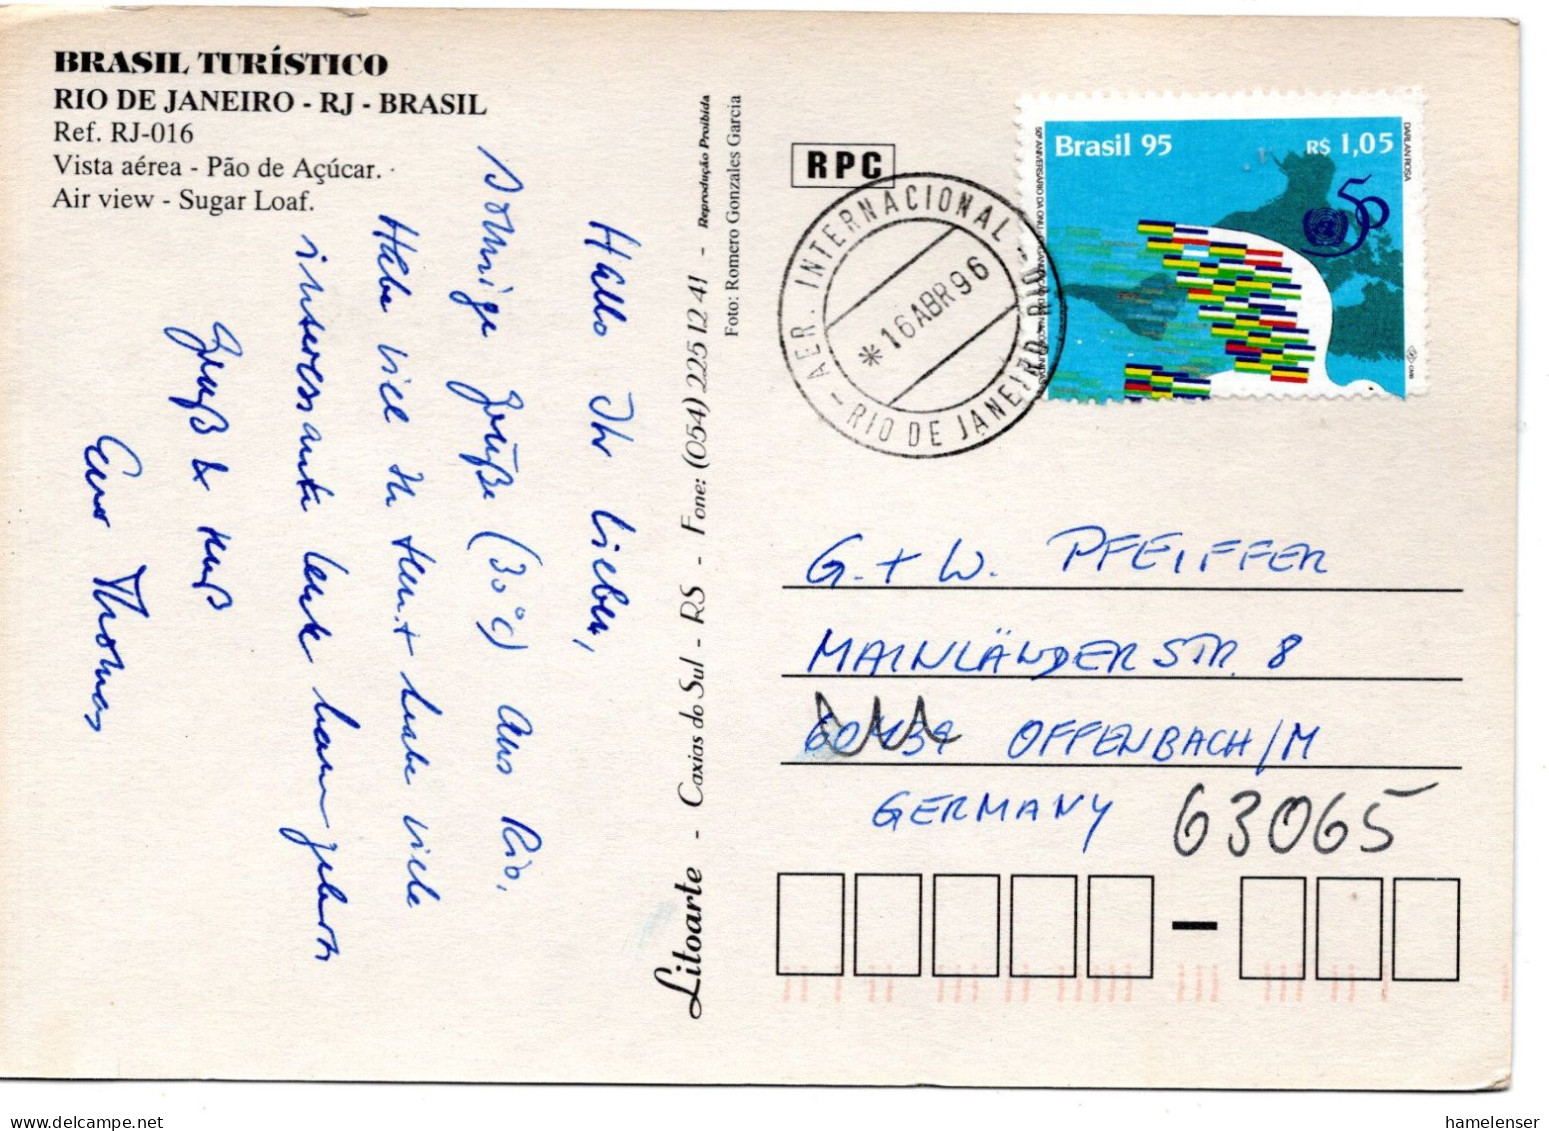 BRASIL TURÍSTICO
RIO DE JANEIRO - RJ - BRASIL
Ref. RJ-016
Vista aérea - Pão de Açúcar.
Air view - Sugar Loaf.
Hallo Ihr Lieben,
Sonnige Grüße (30°C) aus Rio.
Habe viel zu tun + habe viele
interessante Leute kennengelernt
Gruß & Kuß
Euer Thomas
Litoarte - Caxias do Sul - RS - Fone: (054) 225 12 41 - Reprodução Proibida
Foto: Romero Gonzales Garcia
RPC
AER. INTERNACIONAL - RIO
*16 ABR 96
- RIO DE JANEIRO
Brasil 95
R$ 1,05
DARLAN ROSA
50
G. + W. PFEIFFER
MAINLÄNDER STR. 8
OFFENBACH/M
GERMANY 63065
hamelenser